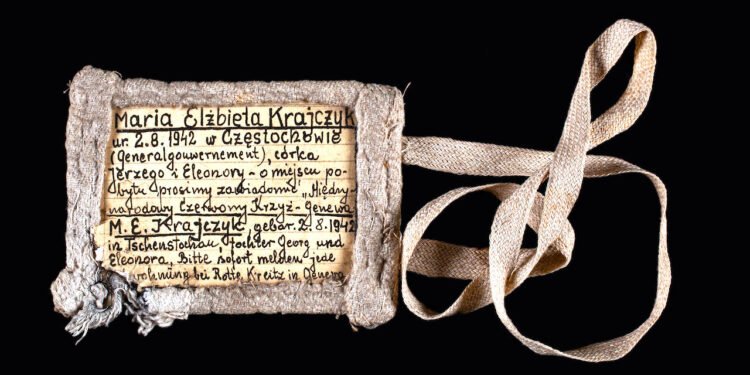 Maria Elżbieta Krajczyk
ur. 2.8.1942 w Częstochowie
(Generalgouvernement), córka
Jerzego i Eleonory - o miejscu po-
bytu prosimy zawiadomić "Między-
narodowy Czerwony Krzyż - Genewa
M. E. Krajczyk, gebor. 2.8.1942
in Tschenstochau, Tochter Georg und
Eleonora. Bitte sofort melden jede
bei Rotte Kreitz in Genewa